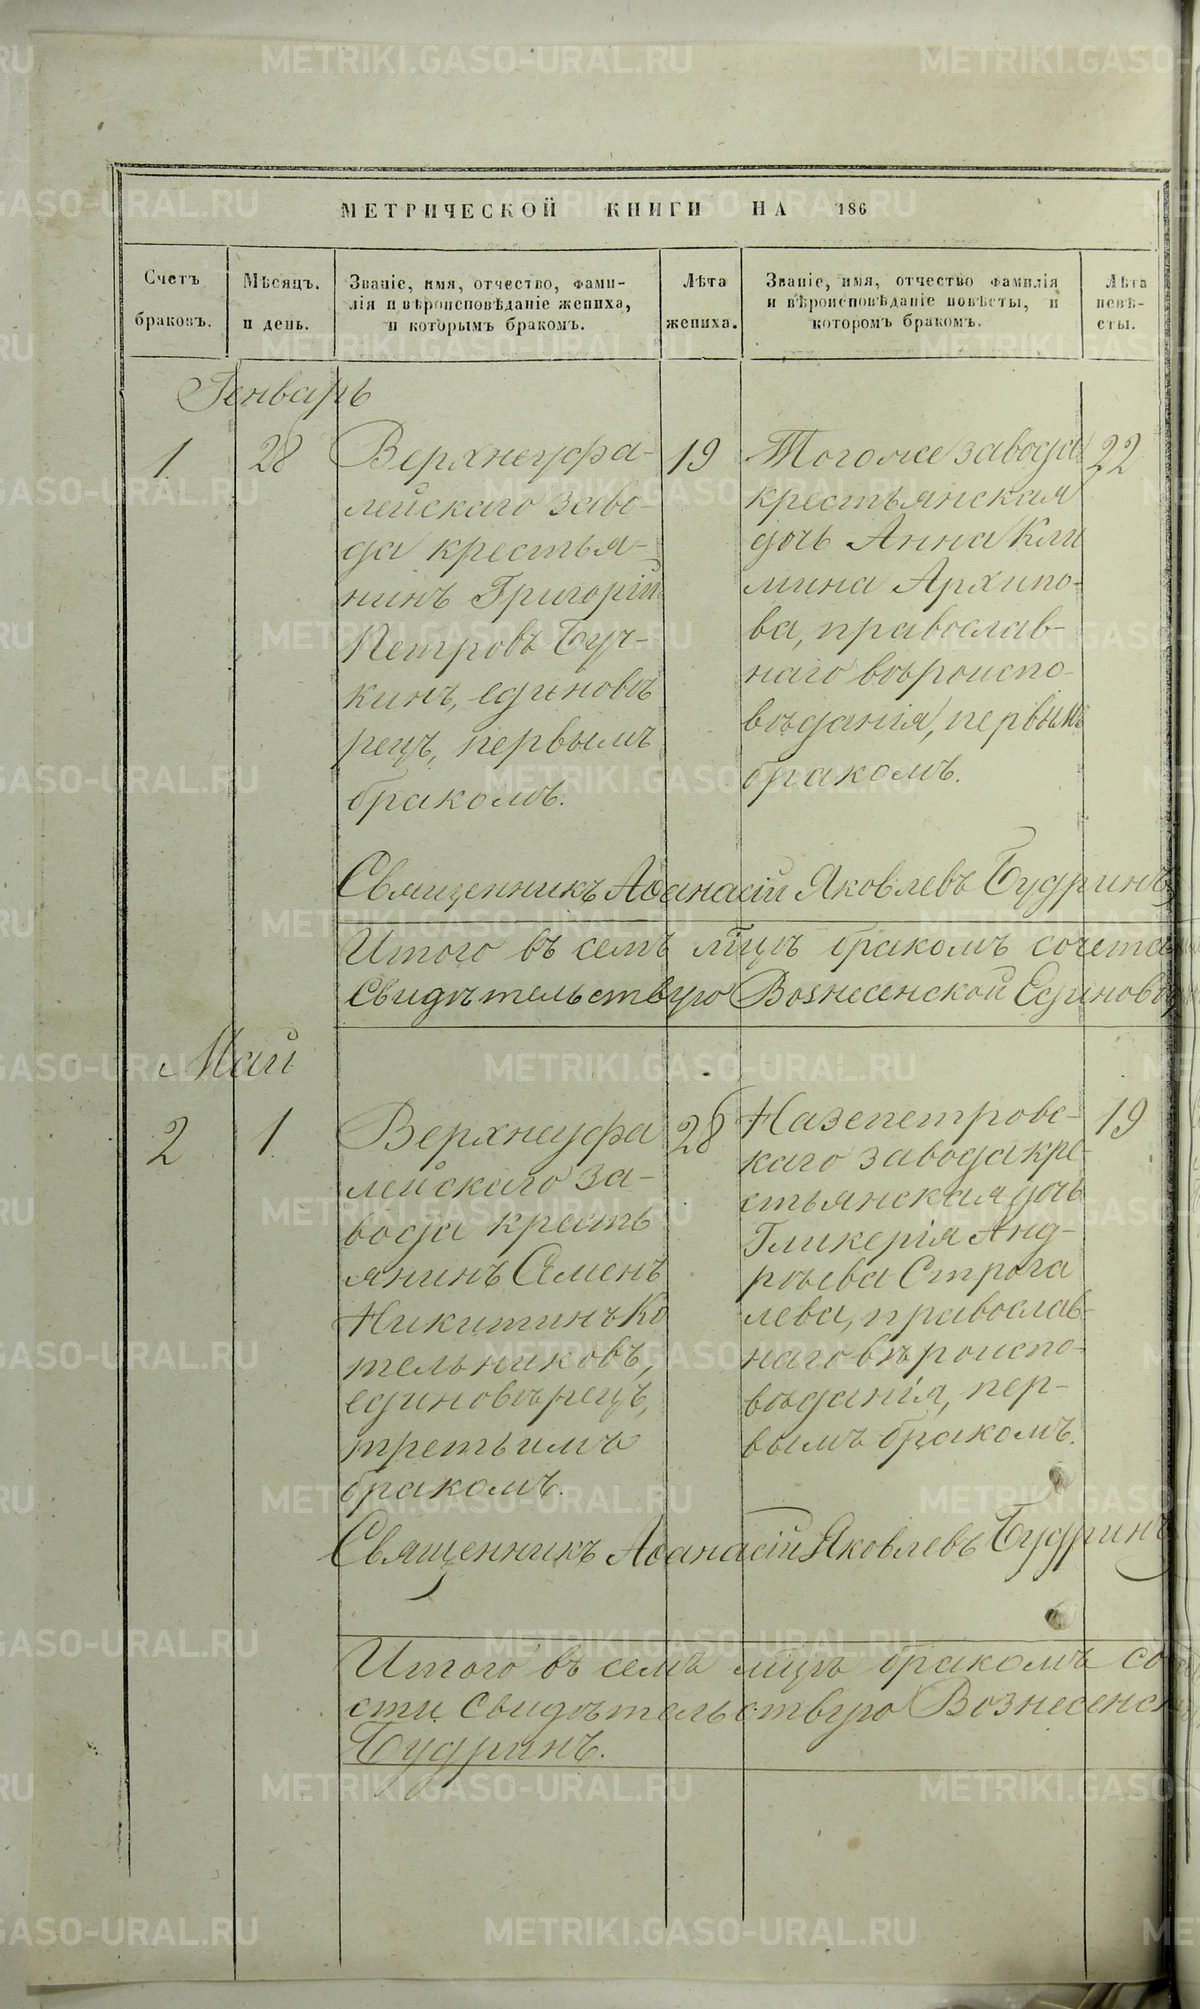 МЕТРИЧЕСКОЙ КНИГИ НА 186
Счетъ браковъ.
Мѣсяцъ. и день.
Званіе, имя, отчество, фами-
лія и вѣроисповѣданіе жениха,
и которымъ бракомъ.
Лѣта жениха.
Званіе, имя, отчество фамилія
и вѣроисповѣданіе невѣсты, и
которомъ бракомъ.
Лѣта
невѣ-
сты.
Генварь
1
28
Верхнеуфа-
лейскаго заво-
да крестья-
нинъ Григорій
Петровъ Буч-
кинъ, единовѣ
рецъ, первымъ
бракомъ.
19
Тогоже завода
крестьянская
дочь Анна Кли
мина Архипо-
ва, православ-
наго вѣроиспо-
вѣданія, первымъ
бракомъ.
22
Священникъ Аѳанасій Яковлевъ Будринъ
Итого въ семъ мѣцѣ бракомъ сочета
Свидѣтельствую Вознесенской Единовѣ
Май
2
1
Верхнеуфа
лейскаго за-
вода кресть
янинъ Семенъ
Никитинъ Ко
тельниковъ,
единовѣрецъ,
третьимъ
бракомъ.
28
Назепетровс-
каго завода кре-
стьянская дочь
Гликерія Анд-
реева Строга
лева, православ-
наго вѣроиспо-
вѣданія, пер-
вымъ бракомъ.
19
Священникъ Аѳанасій Яковлевъ Будринъ
Итого въ семъ мѣцѣ бракомъ со
сти свидѣтельствую Вознесенск
Будринъ.
METRIKI.GASO-URAL.RU